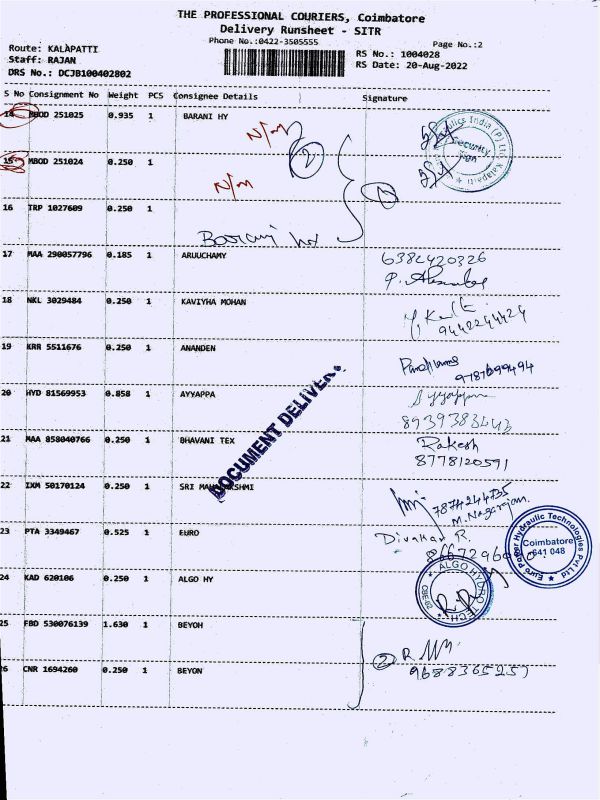 THE PROFESSIONAL COURIERS, Coimbatore
Delivery Runsheet - SITR
Phone No.:0422-3505555 Page No.:2
Route: KALAPATTI
Staff: RAJAN
DRS No.: DCJB100402802
RS No.: 1004028
RS Date: 20-Aug-2022
S No Consignment No Weight PCS Consignee Details Signature
14 MBOD 251025 0.935 1 BARANI HY
N/m
2
Security
15 MBOD 251024 0.250 1
N/m
16 TRP 1027609 0.250 1
17 MAA 290057796 0.185 1 ARUUCHAMY
6382420326
18 NKL 3029484 0.250 1 KAVIYHA MOHAN
9442244424
19 KRR 5511676 0.250 1 ANANDEN
9787699494
20 HYD 81569953 0.858 1 AYYAPPA
Ayyappa
8939383443
DOCUMENT DELIVER
21 MAA 858040766 0.250 1 BHAVANI TEX
Rakesh
8778120591
22 IXM 50170124 0.250 1 SRI
7874244735
M. Nagarajan
23 PTA 3349467 0.525 1 EURO
Divakar R.
Euro Power Hydraulic Technologies Pvt Ltd
Coimbatore
641 048
24 KAD 620106 0.250 1 ALGO HY
ALGO HYDRO TECH
CBE
25 FBD 530076139 1.630 1 BEYOH
R.
26 CNR 1694260 0.250 1 BEYON
2
9688365257